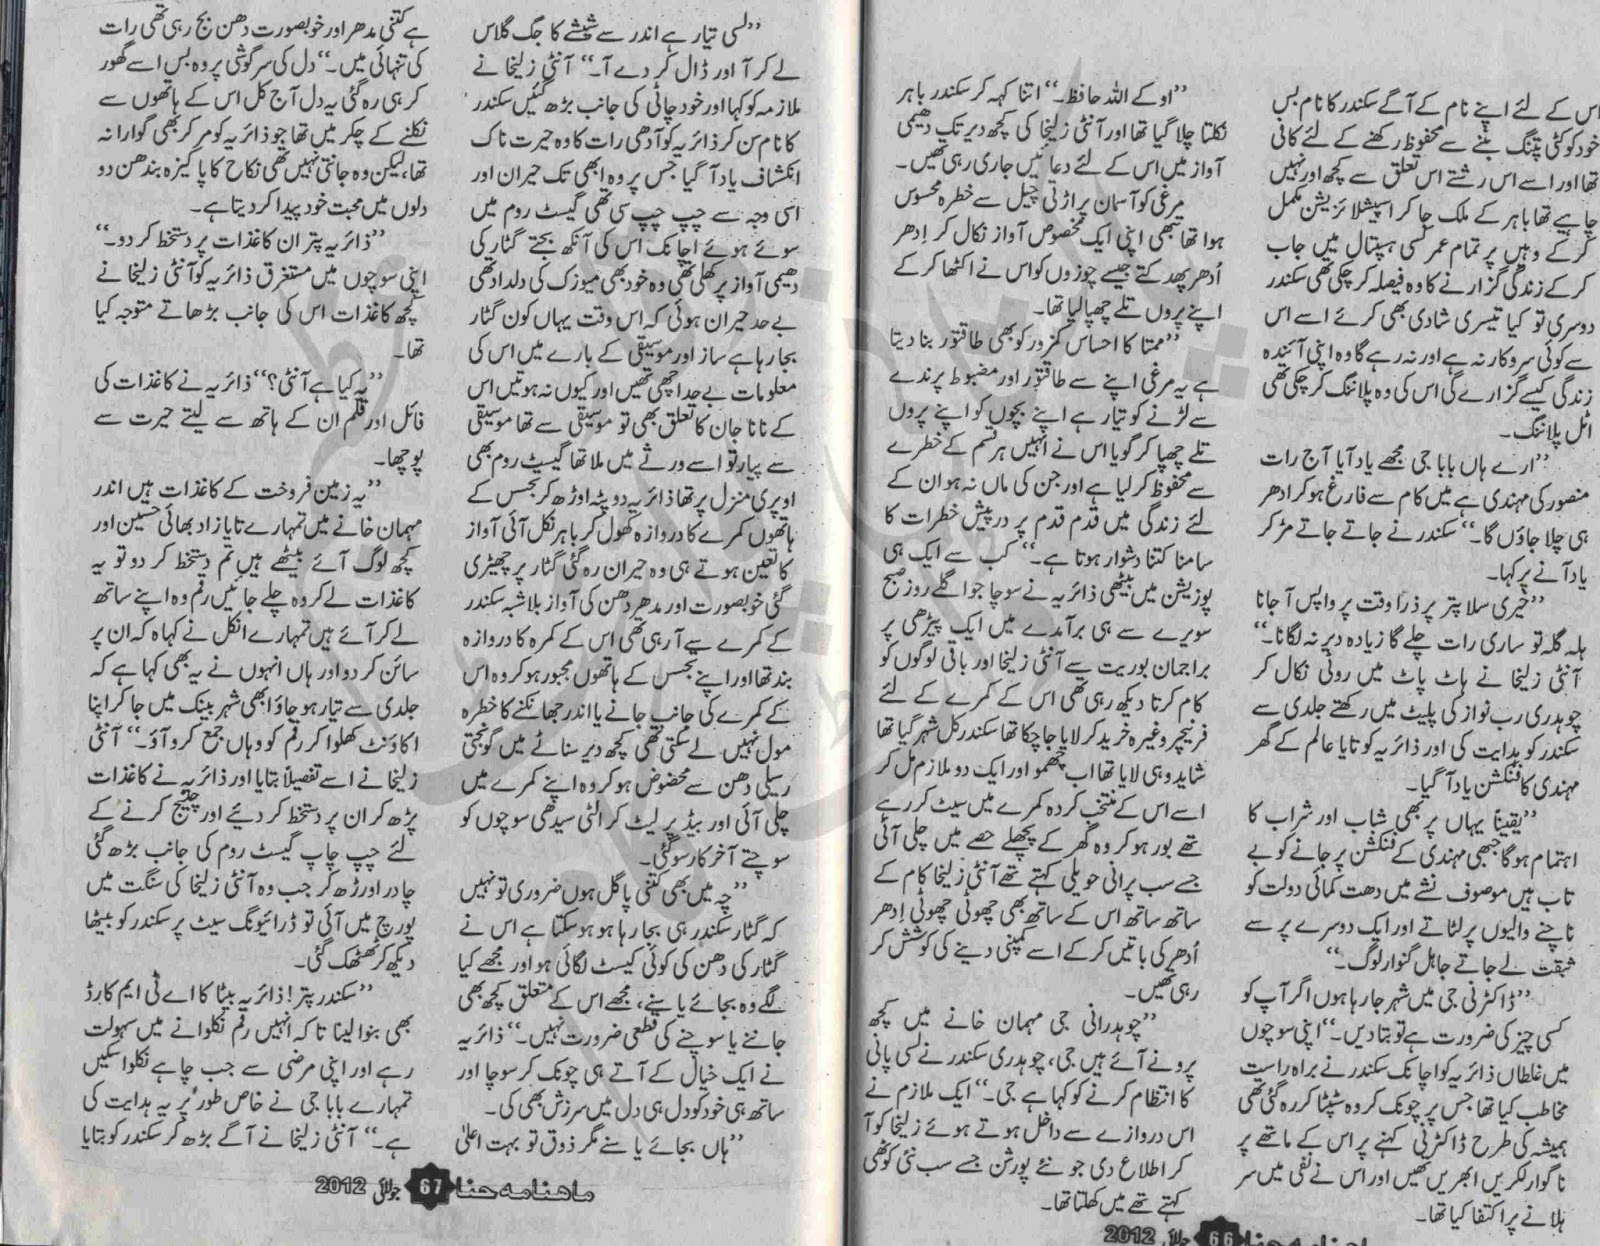 اس کے لئے اپنے نام کے آگے سکندر کا نام بس
خود کو کٹی پتنگ بننے سے محفوظ رکھنے کے لئے کافی
تھا اور اسے اس رشتے اس تعلق سے کچھ اور نہیں
چاہیے تھا باہر کے ملک جا کر اسپیشلائزیشن مکمل
کر کے وہیں پر تمام عمر کسی ہسپتال میں جاب
کر کے زندگی گزارنے کا وہ فیصلہ کر چکی تھی سکندر
دوسری تو کیا تیسری شادی بھی کرئے اسے اس
سے کوئی سروکار نہ ہے اور نہ رہے گا وہ اپنی آئندہ
زندگی کیسے گزارے گی اس کی وہ پلاننگ کر چکی تھی
اٹل پلاننگ۔
”ارے ہاں بابا جی مجھے یاد آیا آج رات
منصور کی مہندی ہے میں کام سے فارغ ہو کر ادھر
ہی چلا جاؤں گا۔“ سکندر نے جاتے جاتے مڑ کر
یاد آنے پر کہا۔
”خیری سلا پتر پر ذرا وقت پر واپس آ جانا
ہلہ گلہ تو ساری رات چلے گا زیادہ دیر نہ لگانا۔“
آنٹی زلیخا نے ہاٹ پاٹ میں روٹی نکال کر
چوہدری رب نواز کی پلیٹ میں رکھتے جلدی سے
سکندر کو ہدایت کی اور ذائریہ کو تایا عالم کے گھر
مہندی کا فنکشن یاد آ گیا۔
”یقیناً یہاں پر بھی شباب اور شراب کا
اہتمام ہو گا جبھی مہندی کے فنکشن پر جانے کو بے
تاب ہیں موصوف نشے میں دھت کمائی دولت کو
ناچنے والیوں پر لٹاتے اور ایک دوسرے پر سے
سبقت لے جاتے جاہل گنوار لوگ۔“
”ڈاکٹرنی جی میں شہر جا رہا ہوں اگر آپ کو
کسی چیز کی ضرورت ہے تو بتا دیں۔“ اپنی سوچوں
میں غلطاں ذائریہ کو اچانک سکندر نے براہ راست
مخاطب کیا تھا جس پر چونک کر وہ سٹپٹا کر رہ گئی تھی
ہمیشہ کی طرح ڈاکٹرنی کہنے پر اس کے ماتھے پر
ناگوار لکیریں ابھریں تھیں اور اس نے نفی میں سر
ہلانے پر اکتفا کیا تھا۔
”او کے اللہ حافظ۔“ اتنا کہہ کر سکندر باہر
نکلتا چلا گیا تھا اور آنٹی زلیخا کی کچھ دیر تک دھیمی
آواز میں اس کے لئے دعائیں جاری رہی تھیں۔
مرغی کو آسمان پر اڑتی چیل سے خطرہ محسوس
ہوا تھا تبھی اپنی ایک مخصوص آواز نکال کر اِدھر
اُدھر پھدکتے جیسے چوزوں کو اس نے اکٹھا کر کے
اپنے پروں تلے چھپا لیا تھا۔
”ممتا کا احساس کمزور کو بھی طاقتور بنا دیتا
ہے یہ مرغی اپنے سے طاقتور اور مضبوط پرندے
سے لڑنے کو تیار ہے اپنے بچوں کو اپنے پروں
تلے چھپا کر گویا اس نے انہیں ہر قسم کے خطرے
سے محفوظ کر لیا ہے اور جن کی ماں نہ ہو ان کے
لئے زندگی میں قدم قدم پر درپیش خطرات کا
سامنا کتنا دشوار ہوتا ہے۔“ کب سے ایک ہی
پوزیشن میں بیٹھی ذائریہ نے سوچا جو اگلے روز صبح
سویرے سے ہی برآمدے میں ایک پیڑھی پر
براجمان بوریت سے آنٹی زلیخا اور باقی لوگوں کو
کام کرتا دیکھ رہی تھی اس کے کمرے کے لئے
فرنیچر وغیرہ خرید کر لایا جا چکا تھا سکندر کل شہر گیا تھا
شاید وہی لایا تھا اب چھمو اور ایک دو ملازم مل کر
اسے اس کے منتخب کردہ کمرے میں سیٹ کر رہے
تھے بور ہو کر وہ گھر کے پچھلے حصے میں چلی آئی
جسے سب پرانی حویلی کہتے تھے آنٹی زلیخا کام کے
ساتھ ساتھ اس کے ساتھ بھی چھوٹی چھوٹی اِدھر
اُدھر کی باتیں کر کے اسے کمپنی دینے کی کوشش کر
رہی تھیں۔
”چوہدرانی جی مہمان خانے میں کچھ
پرونے آئے ہیں جی، چوہدری سکندر نے لسی پانی
کا انتظام کرنے کو کہا ہے جی۔“ ایک ملازم نے
اس دروازے سے داخل ہوتے ہوئے زلیخا کو آ
کر اطلاع دی جو نئے پورشن جسے سب نئی کوٹھی
کہتے تھے میں کھلتا تھا۔
ماہنامہ حنا 66 جولائی 2012
”لسی تیار ہے اندر سے شیشے کا جگ گلاس
لے کر آ اور ڈال کر دے آ۔“ آنٹی زلیخا نے
ملازمہ کو کہا اور خود چاٹی کی جانب بڑھ گئیں سکندر
کا نام سن کر ذائریہ کو آدھی رات کا وہ حیرت ناک
انکشاف یاد آ گیا جس پر وہ ابھی تک حیران اور
اسی وجہ سے چپ چپ سی تھی گیسٹ روم میں
سوئے ہوئے اچانک اس کی آنکھ بجتے گٹار کی
دھیمی آواز پر کھلی تھی وہ خود بھی میوزک کی دلدادہ تھی
بے حد حیران ہوئی کہ اس وقت یہاں کون گٹار
بجا رہا ہے ساز اور موسیقی کے بارے میں اس کی
معلومات بے حد اچھی تھیں اور کیوں نہ ہوتیں اس
کے نانا جان کا تعلق بھی تو موسیقی سے تھا موسیقی
سے پیار تو اسے ورثے میں ملا تھا گیسٹ روم بھی
اوپری منزل پر تھا ذائریہ دوپٹہ اوڑھ کر تجسس کے
ہاتھوں کمرے کا دروازہ کھول کر باہر نکل آئی آواز
کا تعین ہوتے ہی وہ حیران رہ گئی گٹار پر چھیڑی
گئی خوبصورت اور مدھر دھن کی آواز بلاشبہ سکندر
کے کمرے سے آ رہی تھی اس کے کمرہ کا دروازہ
بند تھا اور اپنے تجسس کے ہاتھوں مجبور ہو کر وہ اس
کے کمرے کی جانب جانے یا اندر جھانکنے کا خطرہ
مول نہیں لے سکتی تھی کچھ دیر سناٹے میں گونجتی
رسیلی دھن سے محضوض ہو کر وہ اپنے کمرے میں
چلی آئی اور بیڈ پر لیٹ کر الٹی سیدھی سوچوں کو
سوچتے آخر کار سو گئی۔
”چہ میں بھی کتنی پاگل ہوں ضروری تو نہیں
کہ گٹار سکندر ہی بجا رہا ہو ہو سکتا ہے اس نے
گٹار کی دھن کی کوئی کیسٹ لگائی ہو اور مجھے کیا
لگے وہ بجائے یا سنے، مجھے اس کے متعلق کچھ بھی
جاننے یا سوچنے کی قطعی ضرورت نہیں۔“ ذائریہ
نے ایک خیال کے آتے ہی چونک کر سوچا اور
ساتھ ہی خود کو دل ہی دل میں سرزش بھی کی۔
”ہاں بجائے یا سنے مگر ذوق تو بہت اعلیٰ
ہے کتنی مدھر اور خوبصورت دھن بج رہی تھی رات
کی تنہائی میں۔“ دل کی سرگوشی پر وہ بس اسے گھور
کر ہی رہ گئی یہ دل آج کل اس کے ہاتھوں سے
نکلنے کے چکر میں تھا جو ذائریہ کو مر کر بھی گوارا نہ
تھا، لیکن وہ جانتی نہیں تھی نکاح کا پاکیزہ بندھن دو
دلوں میں محبت خود پیدا کر دیتا ہے۔
”ذائریہ پتر ان کاغذات پر دستخط کر دو۔“
اپنی سوچوں میں مستغرق ذائریہ کو آنٹی زلیخا نے
کچھ کاغذات اس کی جانب بڑھاتے متوجہ کیا
تھا۔
”یہ کیا ہے آنٹی؟“ ذائریہ نے کاغذات کی
فائل اور قلم ان کے ہاتھ سے لیتے حیرت سے
پوچھا۔
”یہ زمین فروخت کے کاغذات ہیں اندر
مہمان خانے میں تمہارے تایا زاد بھائی حسین اور
کچھ لوگ آئے بیٹھے ہیں تم دستخط کر دو تو یہ
کاغذات لے کر وہ چلے جائیں رقم وہ اپنے ساتھ
لے کر آئے ہیں تمہارے انکل نے کہا کہ ان پر
سائن کر دو اور ہاں انہوں نے یہ بھی کہا ہے کہ
جلدی سے تیار ہو جاؤ ابھی شہر بینک میں جا کر اپنا
اکاؤنٹ کھلوا کر رقم کو وہاں جمع کرو آؤ۔“ آنٹی
زلیخا نے اسے تفصیلاً بتایا اور ذائریہ نے کاغذات
پڑھ کر ان پر دستخط کر دیئے اور چینج کرنے کے
لئے چپ چاپ گیسٹ روم کی جانب بڑھ گئی
چادر اوڑھ کر جب وہ آنٹی زلیخا کی سنگت میں
پورچ میں آئی تو ڈرائیونگ سیٹ پر سکندر کو بیٹھا
دیکھ کر ٹھٹھک گئی۔
”سکندر پتر! ذائریہ بیٹا کا اے ٹی ایم کارڈ
بھی بنوا لینا تاکہ انہیں رقم نکلوانے میں سہولت
رہے اور اپنی مرضی سے جب چاہے نکلوا سکیں
تمہارے بابا جی نے خاص طور پر یہ ہدایت کی
ہے۔“ آنٹی زلیخا نے آگے بڑھ کر سکندر کو بتایا
ماہنامہ حنا 67 جولائی 2012